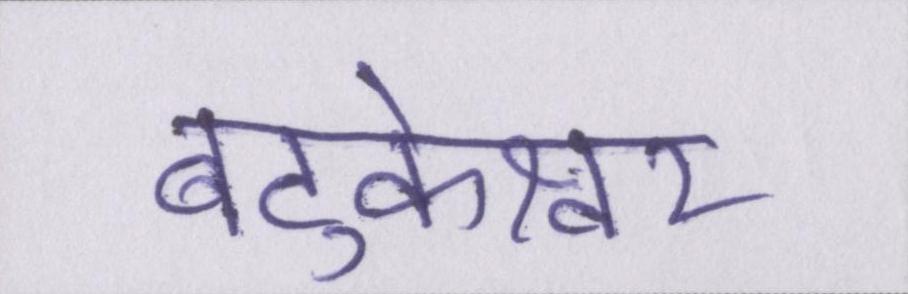 बटुकेश्वर